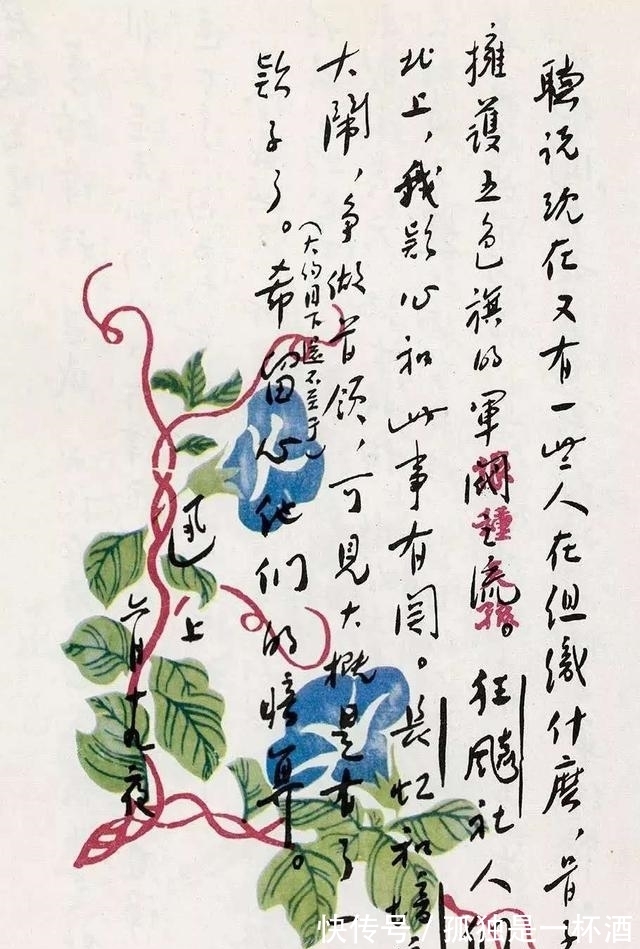 聽说现在又有一些人在组織什麽，
擁護五色旗的軍閥之流。狂飈社人
北上，我疑心和此事有関。長虹和培
大鬧，争做首领，可見大概是有了
（大约目下還不至于）
款子了。希留心他们的暗算。
迅上
六月十九夜
快传号/孤独是一杯酒